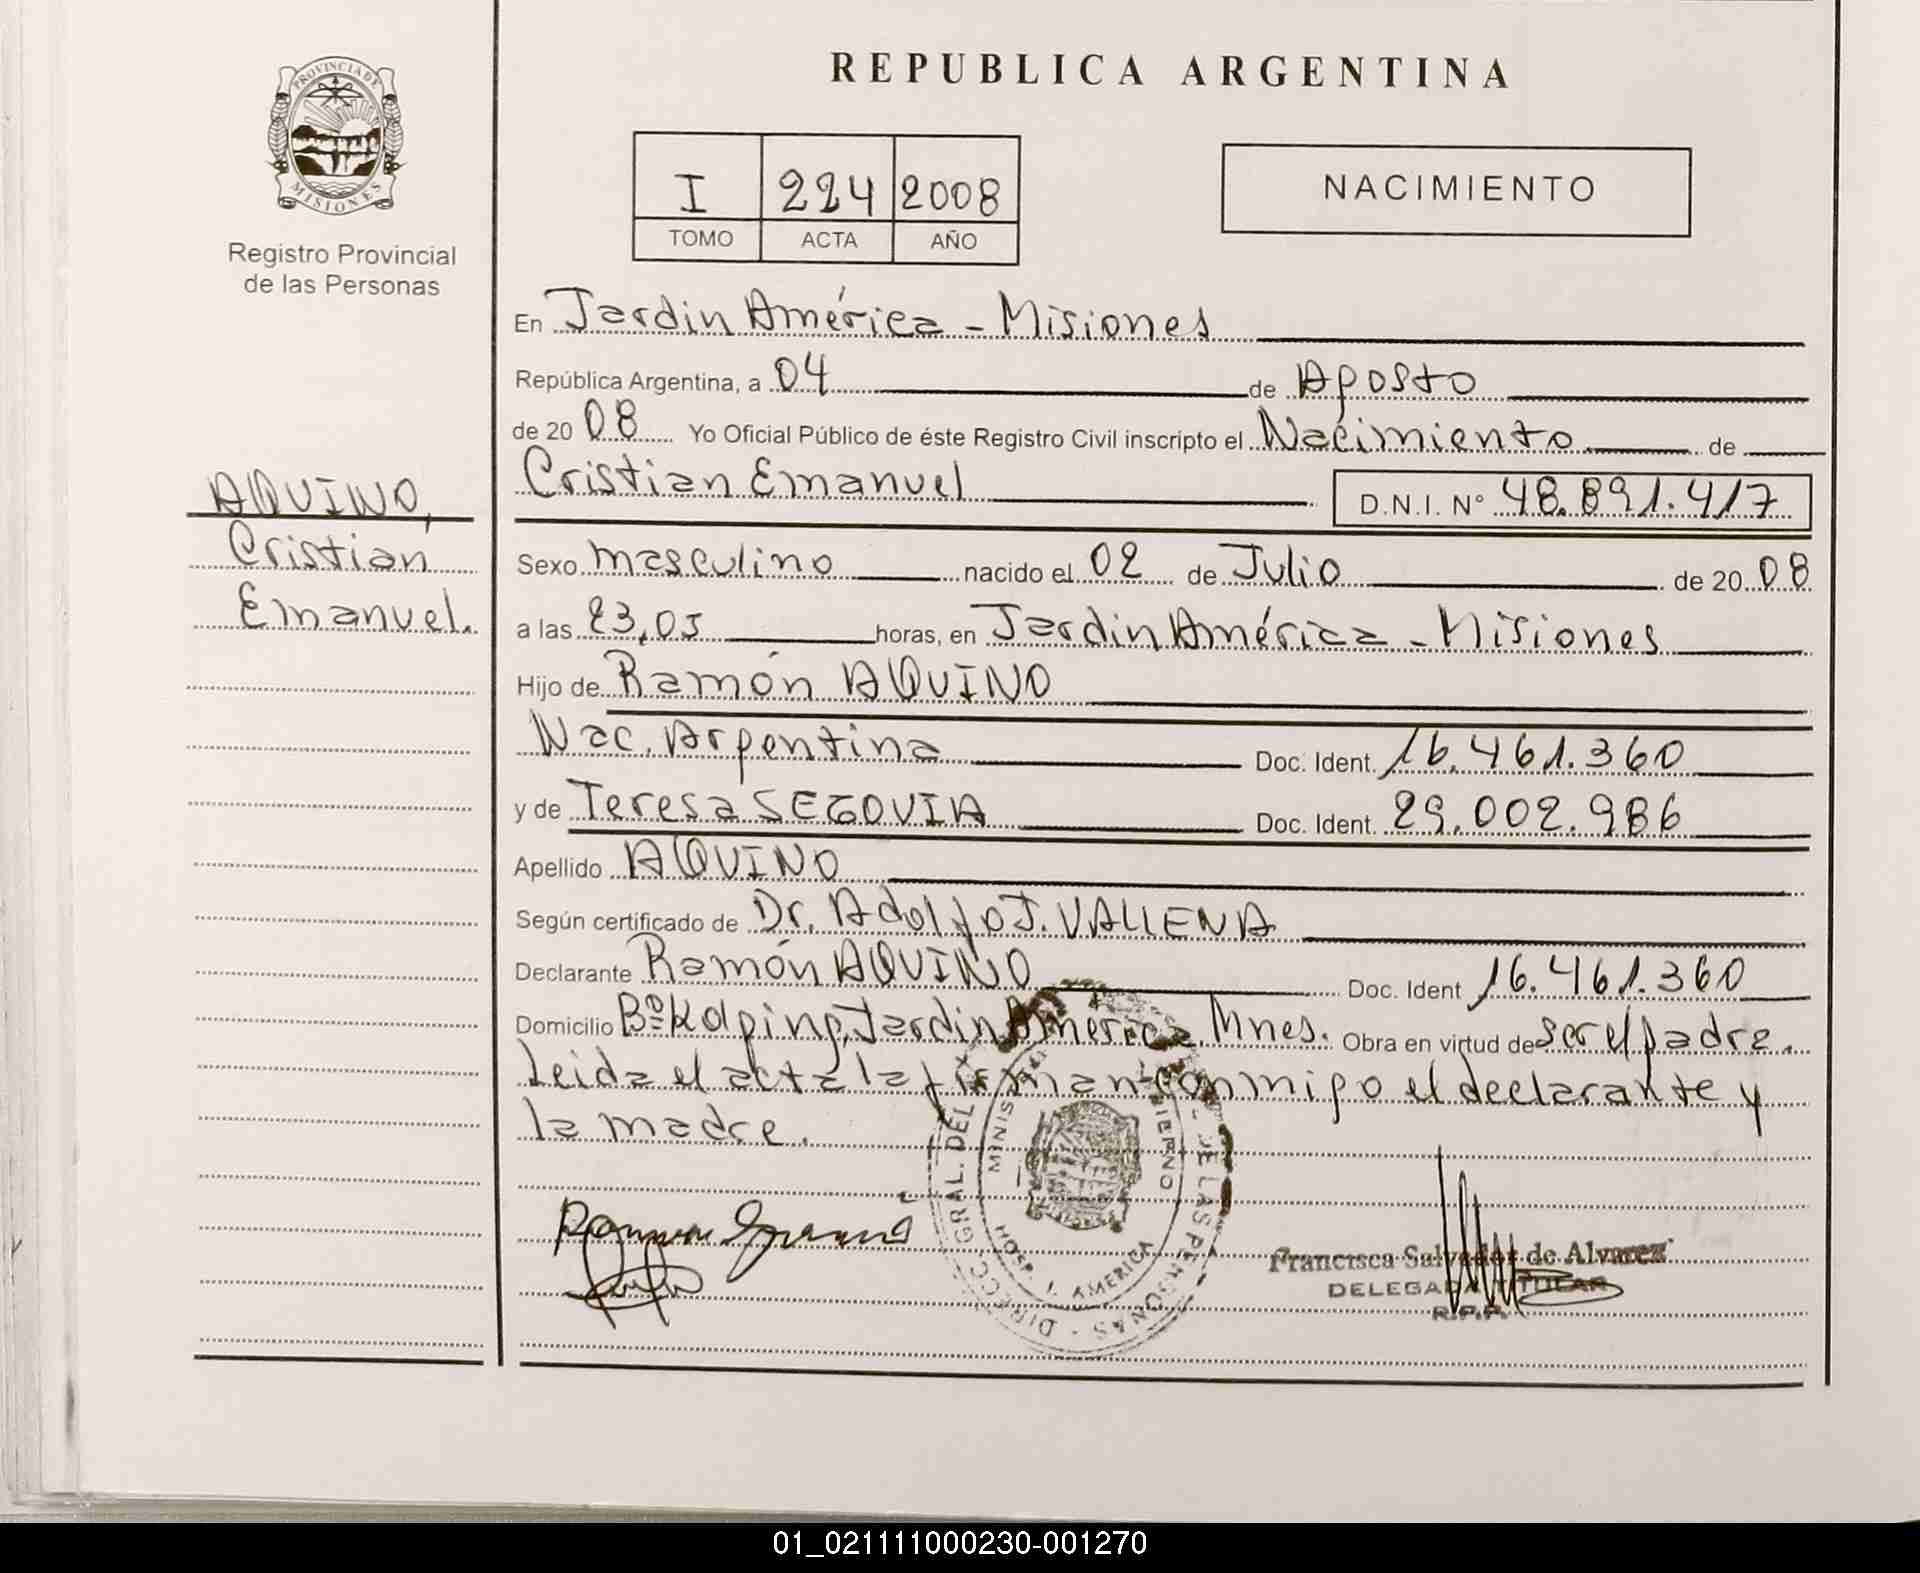 PROVINCIA DE
MISIONES
Registro Provincial
de las Personas
AQUINO,
Cristian
Emanuel.
REPUBLICA ARGENTINA
I 224 2008
TOMO ACTA AÑO
NACIMIENTO
En Jardin América - Misiones
República Argentina, a 04 de Agosto
de 20 08 Yo Oficial Público de éste Registro Civil inscripto el Nacimiento de
Cristian Emanuel D.N.I. Nº 48.891.417
Sexo masculino nacido el 02 de Julio de 20 08
a las 23,05 horas, en Jardin América - Misiones
Hijo de Ramón AQUINO
Nac. Argentina Doc. Ident. 16.461.360
y de Teresa SEGOVIA Doc. Ident. 29.002.986
Apellido AQUINO
Según certificado de Dr. Adolfo J. VALLENA
Declarante Ramón AQUINO Doc. Ident 16.461.360
Domicilio Bº Jardin América, Mnes. Obra en virtud de ser el padre.
Leida el acta la firman conmigo el declarante y
la madre.
DIRECC. GRAL. DEL DE LAS PERSONAS
HOSP. J. AMERICA
Francisca Salvador de Alvarez
DELEGADA TITULAR
R.P.P.
01_021111000230-001270